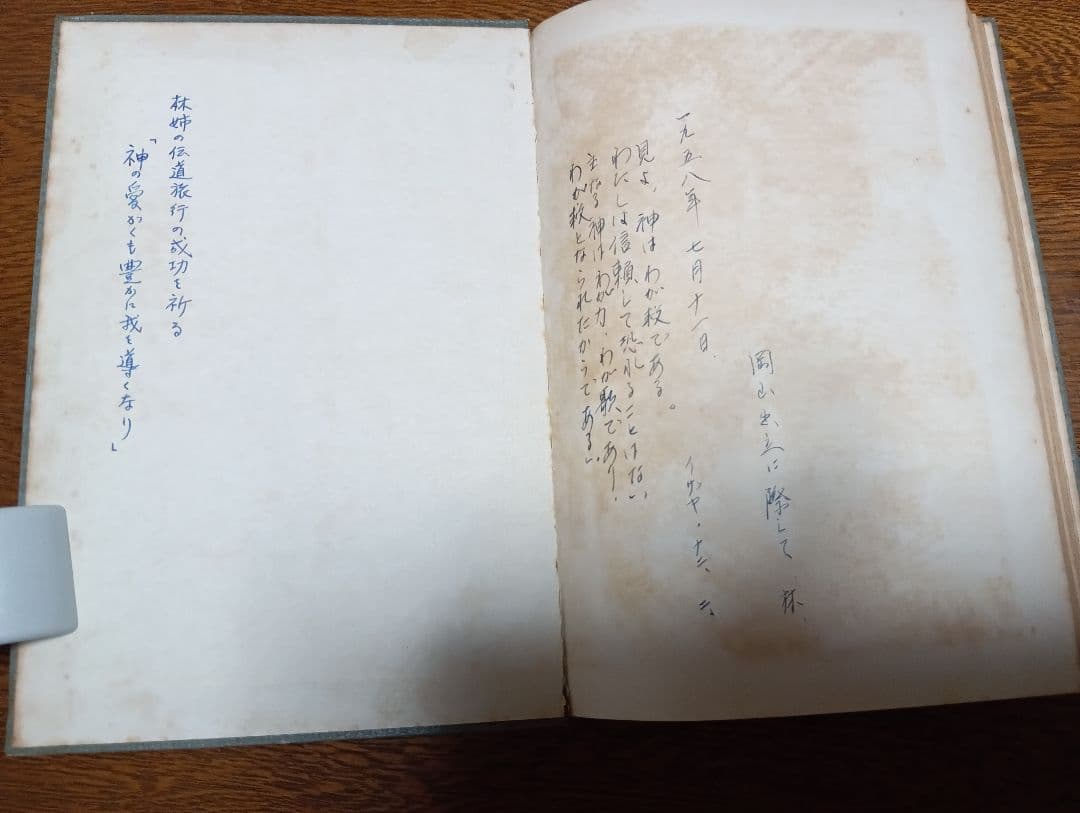 岡山出立に際して　林、
一九五八年　七月十一日、
イザヤ・十二、二、
見よ、神は わが救である。
わたしは信頼して恐れることはない、
主なる神はわが力、わが歌であり、
わが救となられたからである。
林姉の伝道旅行の成功を祈る
「神の愛かくも豊かに我を導くなり」